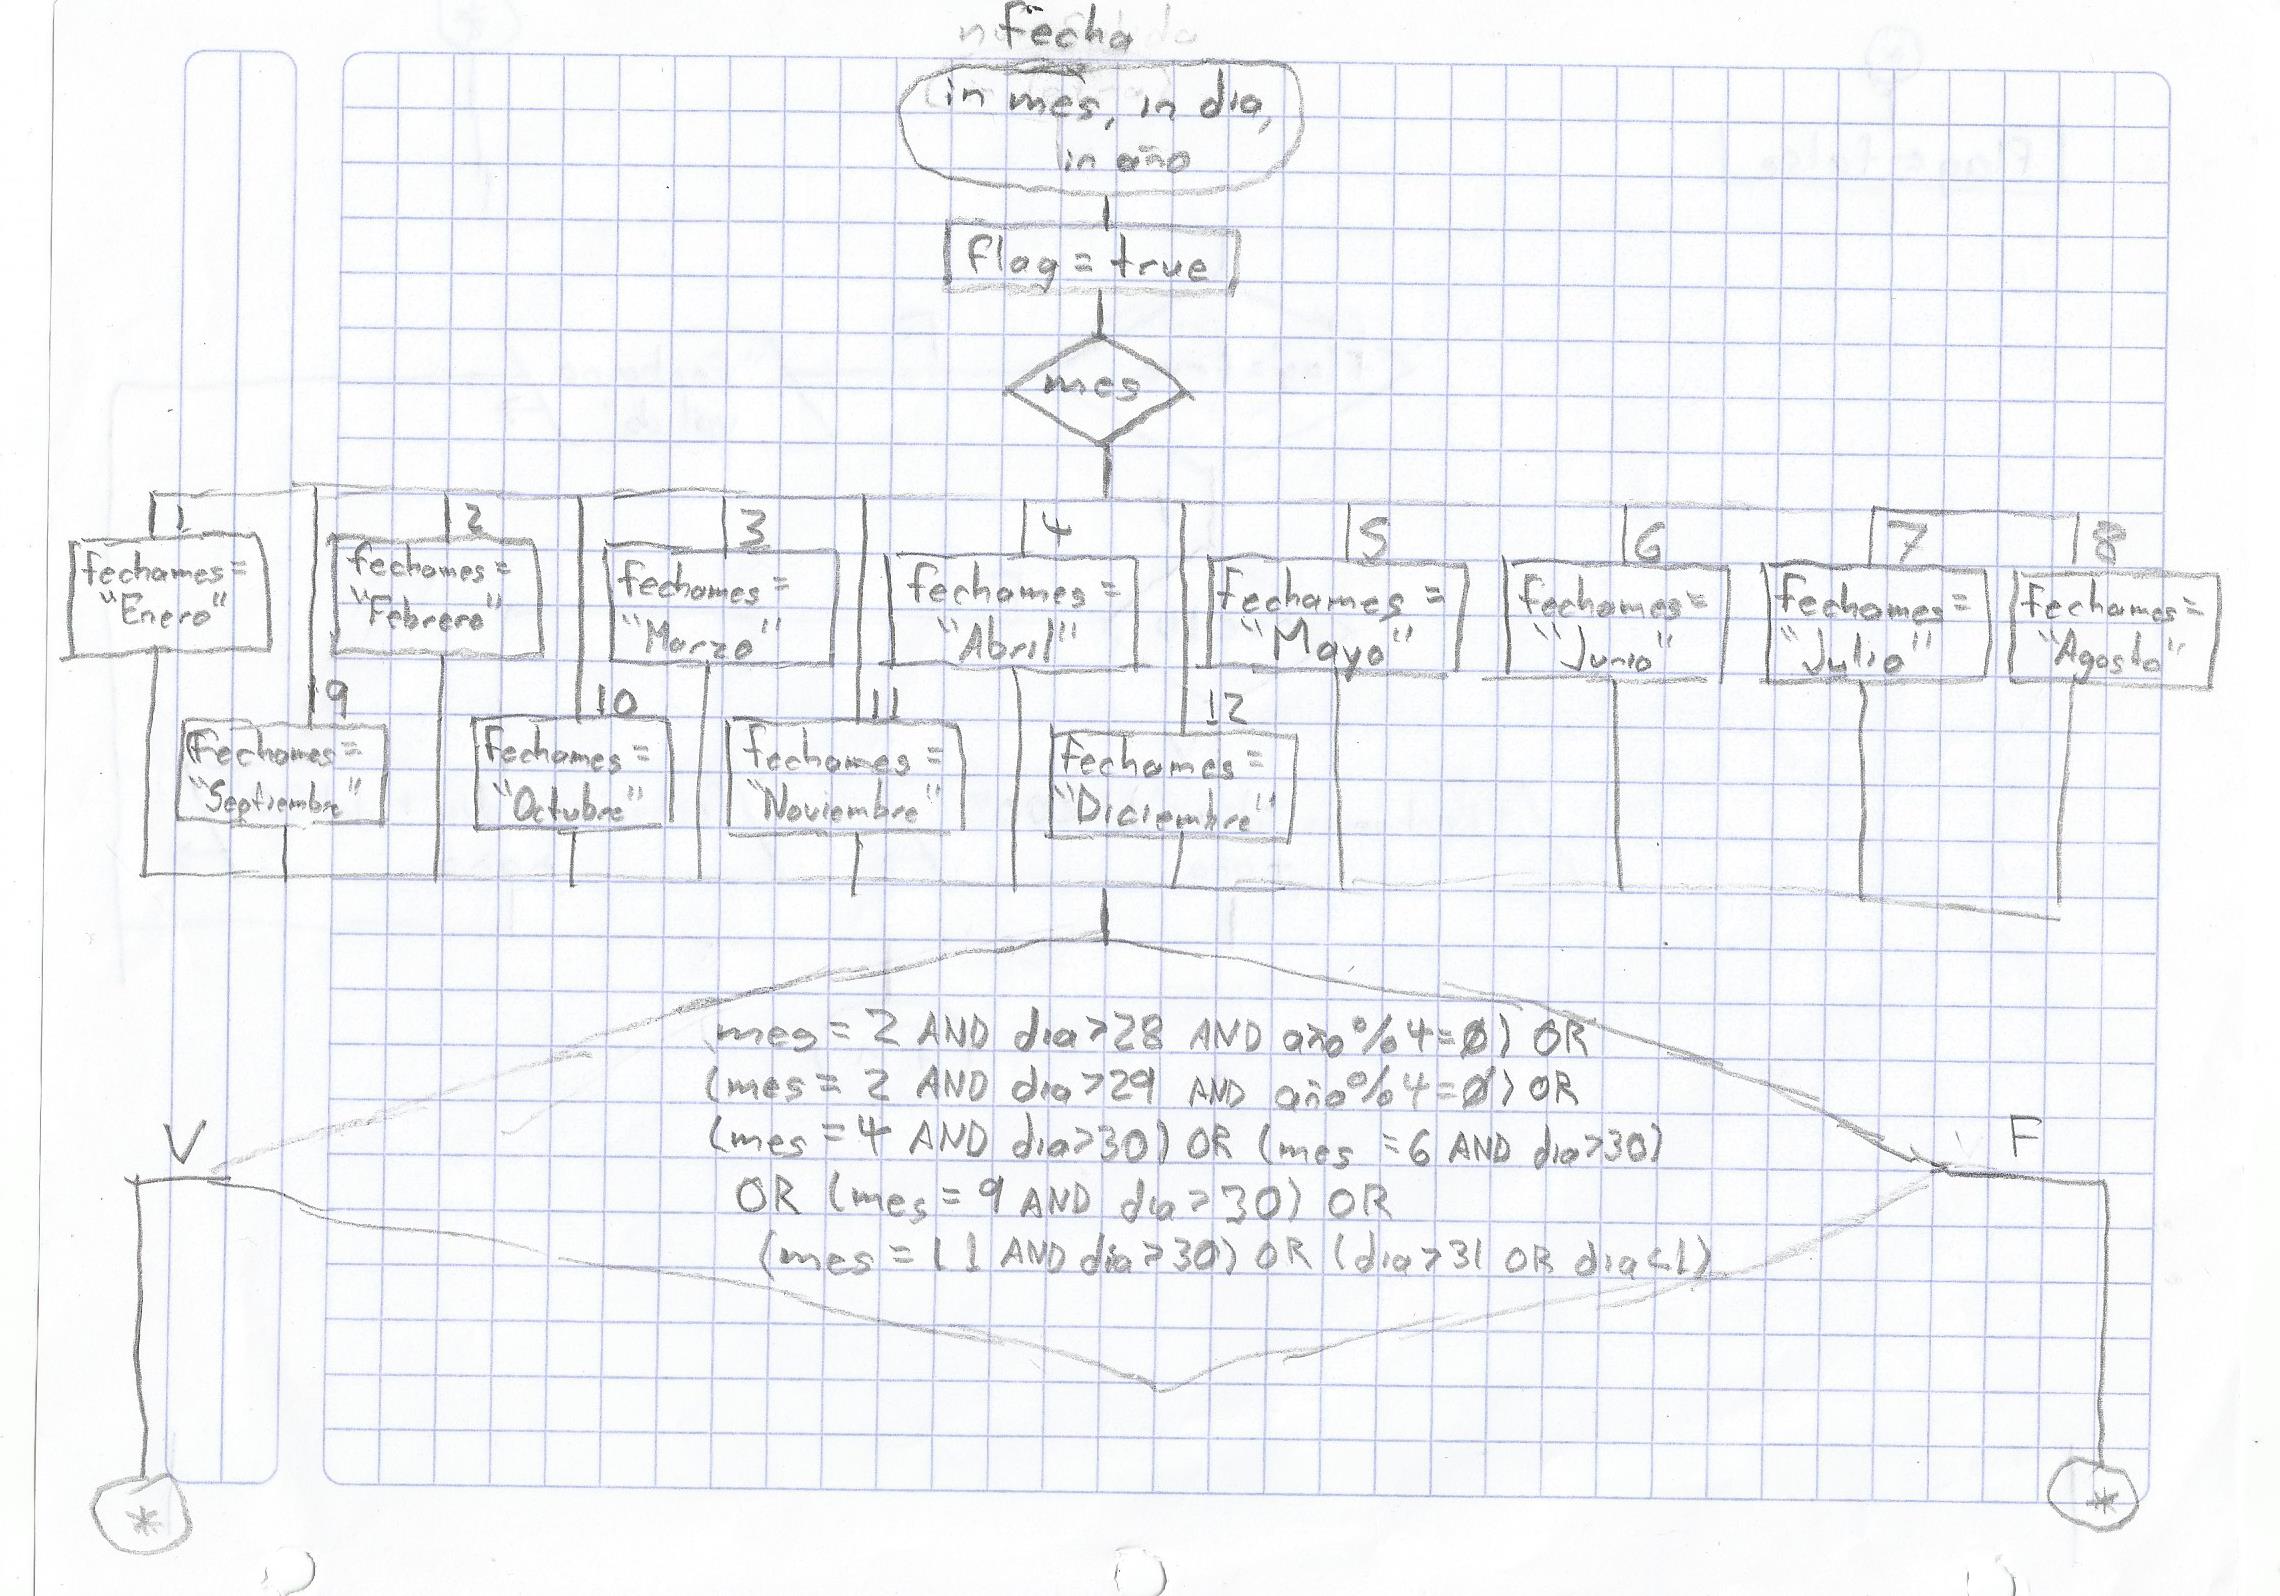 fecha
in mes, in dia,
in año
flag = true
mes
1
2
3
4
5
6
7
8
fechames =
"Enero"
fechames =
"Febrero"
fechames =
"Marzo"
fechames =
"Abril"
fechames =
"Mayo"
fechames =
"Junio"
fechames =
"Julio"
fechames =
"Agosto"
9
10
11
12
fechames =
"Septiembre"
fechames =
"Octubre"
fechames =
"Noviembre"
fechames =
"Diciembre"
mes = 2 AND dia>28 AND año%4=0) OR
(mes = 2 AND dia>29 AND año%4=0) OR
(mes = 4 AND dia>30) OR (mes = 6 AND dia>30)
OR (mes = 9 AND dia > 30) OR
(mes = 11 AND dia>30) OR (dia>31 OR dia<1)
V
F
*
*